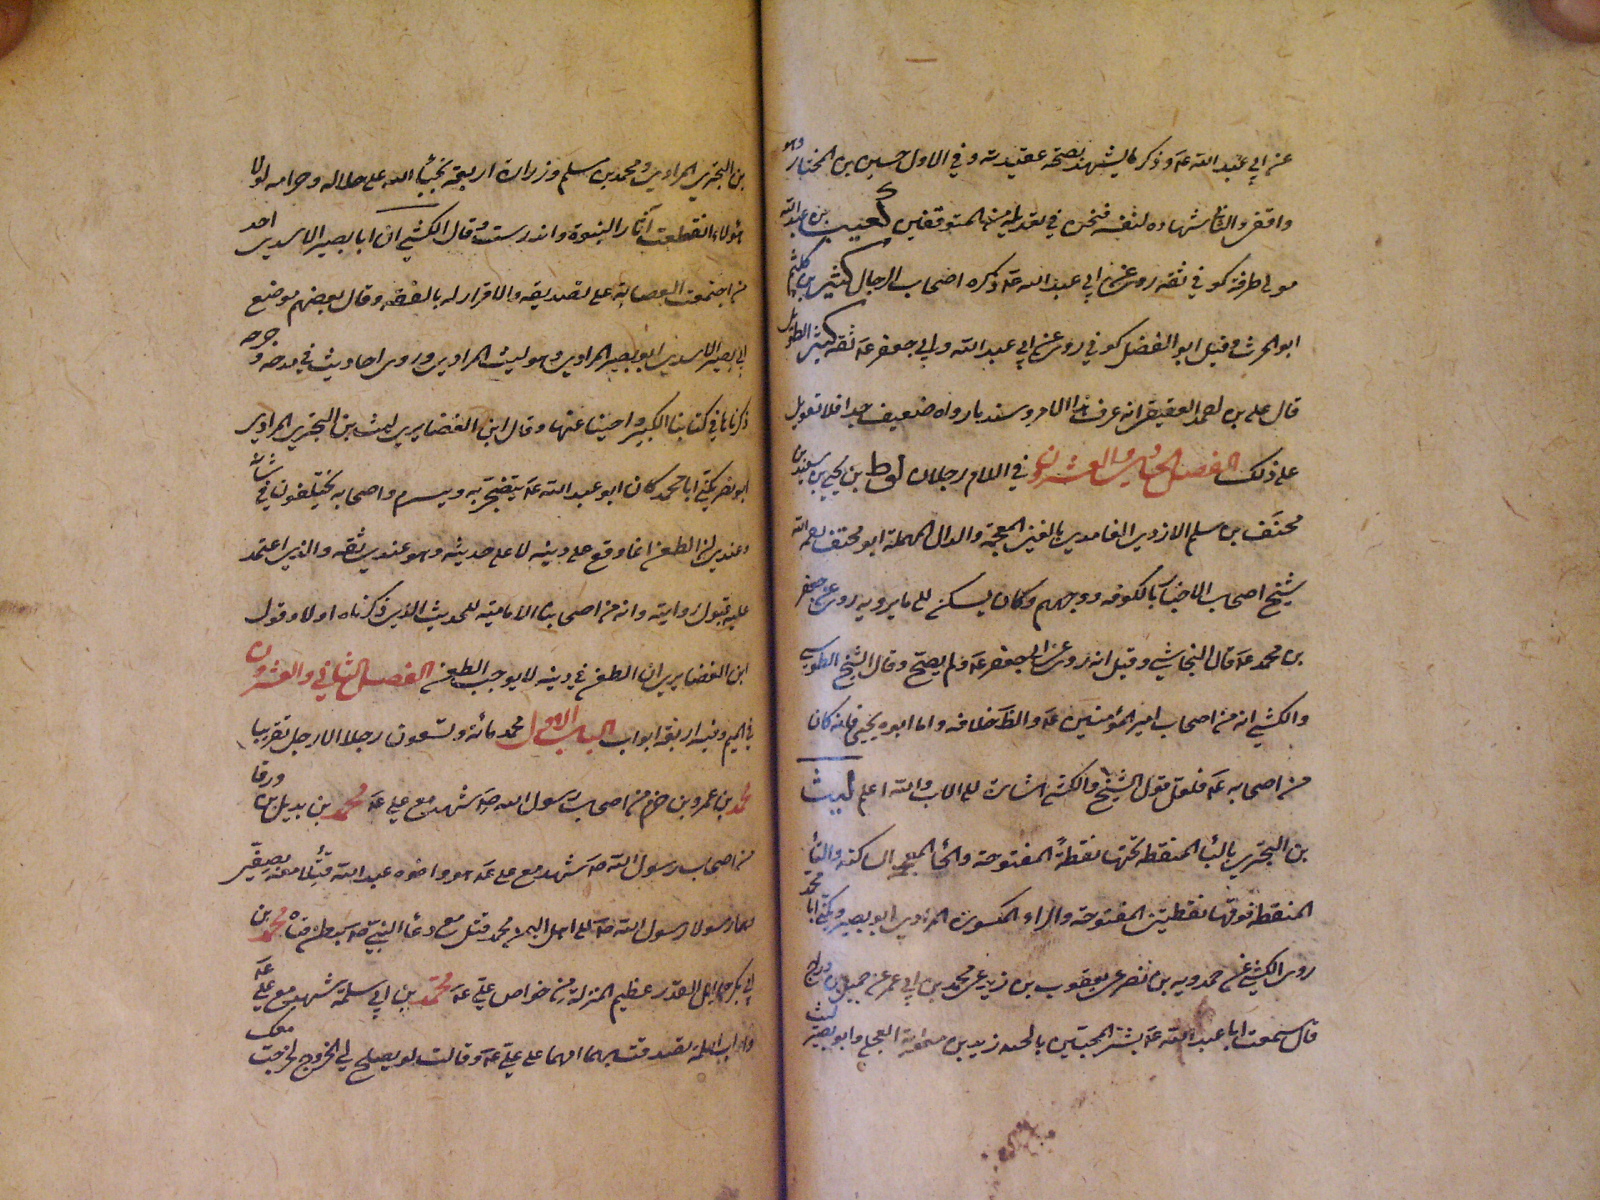 عن ابي عبد الله عه وذكر ما يشهد بصحة عقيدته وفي الاول حسين بن المختار وهو
واقفي والثاني شهادة لنفسه فنحن في تعديله من المتوقفين كعيب بن عبد الله
مولى طرفة كوفي ثقة روى عن ابي عبد الله عه ذكره اصحاب الرجال كثير بن كلثم
ابو الحرث وقيل ابو الفضل كوفي روى عن ابي عبد الله وابي جعفر عه ثقة كثير الطويل
قال علي بن احمد العقيقي انه عرف هذا الامر وسنده بارواه ضعيف جدا فلا تعويل
على ذلك الفصل الحادي والعشرون في اللام رجلان لوط بن يحيى بن سعيد بن
مخنف بن سلم الازدي الغامدي بالغين المعجمة والدال المهملة ابو مخنف رحمه الله
شيخ اصحاب الاخبار بالكوفة ووجههم وكان يسكن الى ما يرويه روى عن جعفر
بن محمد عه قال النجاشي وقيل انه روى عن ابي جعفر عه ولم يصح وقال الشيخ الطوسي
والكشي انه من اصحاب امير المؤمنين عه والظ خلافه واما ابوه يحيى فانه كان
من اصحابه عه فلعل قول الشيخ والكشي اشارة الى الاب والله اعلم ليث
بن البختري بالباء المنقطة تحتها نقطة المفتوحة والخاء المعجمة الساكنة والتاء
المنقطة فوقها نقطتين المفتوحة والراء المكسورة المرادي ابو بصير ويكنى ابا محمد
روى الكشي عن حمدويه بن نصر عن يعقوب بن زيد عن محمد بن ابي عمير عن جميل بن دراج
قال سمعت ابا عبد الله عه بشر المخبتين بالجنه زيد بن معوية العجلي وابو بصير ليث
بن البختري المرادي ومحمد بن مسلم وزرارة اربعة نجباء امناء الله على حلاله وحرامه لولا
هؤلاء انقطعت آثار النبوة واندرست وقال الكشي ان ابا بصير الاسدي احد
من اجتمعت العصابة على تصديقه والاقرار له بالفقه وقال بعضهم موضع
ابي بصير الاسدي ابو بصير المرادي وهو ليث المرادي وروى احاديث في مدحه وجرحه
ذكرناها في كتابنا الكبير واجبنا عنها وقال ابن الغضايري ليث بن البختري المرادي
ابو بصير يكنى ابا محمد كان ابو عبد الله عه يتضجر به ويتبرم واصحابه يختلفون في شانه
وعندي ان الطعن انما وقع على دينه لا على حديثه وهو عندي ثقة والذي اعتمد
عليه قبول روايته وانه من اصحابنا الامامية للحديث الذي ذكرناه اولا وقول
ابن الغضايري ان الطعن في دينه لا يوجب الطعن الفصل الثاني والعشرون
في الميم وفيه اربعة ابواب الباب الاول محمد مائة وتسعون رجلا الا رجل تقريبا
محمد بن عمرو بن حزم من اصحاب رسول الله صه شهد مع علي عه محمد بن بديل بن ورقا
من اصحاب رسول الله صه شهد مع علي عه هو واخوه عبد الله قتلا معه بصفين
وهما رسولا رسول الله صه الى اهل اليمن محمد قتل مع دعاء النبي صه محمد بن
ابي بكر جليل القدر عظيم المنزلة من خواص علي عه محمد بن ابي سلمة شهد مع علي عه
واتت ام سلمة بهما اليه وقالت لو يصلح لي الخروج لخرجت معك